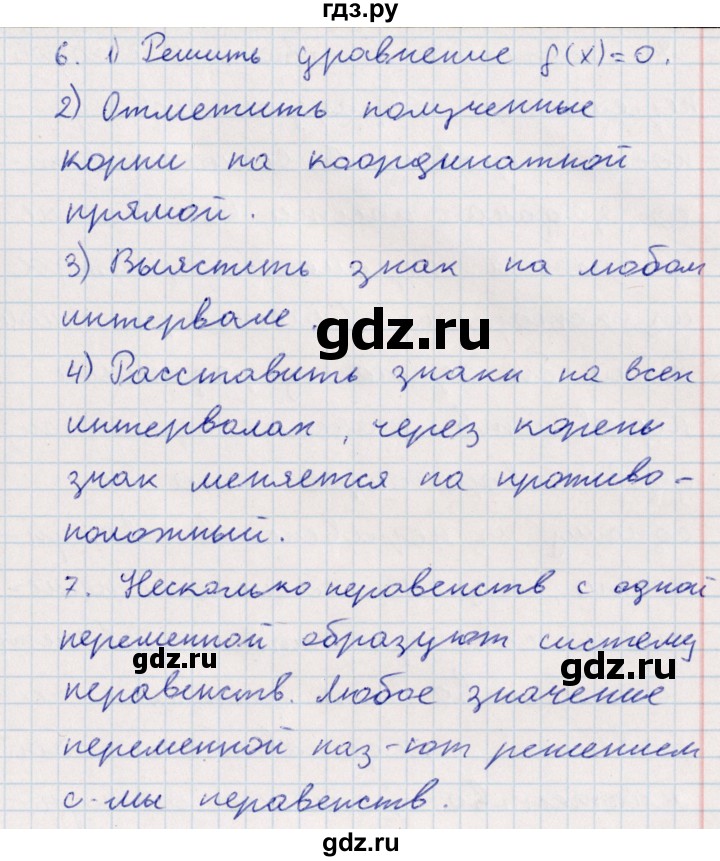 гдз.ру
6. 1) Решить уравнение f(x)=0.
2) Отметить полученные
корни на координатной
прямой.
3) Выястить знак на любом
интервале.
gdz.ru
4) Расставить знаки на всех
интервалах, через корень
знак меняется на противо-
положный.
7. Несколько неравенств с одной
переменной образуют систему
gdz.ru
gdz.ru
неравенств. Любое значение
переменной наз-ют решением
с-мы неравенств.
gdz.ru